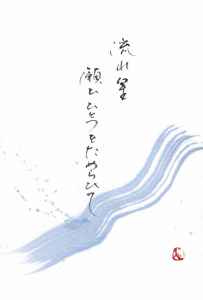 流れ星
願ひひとつをためらひて